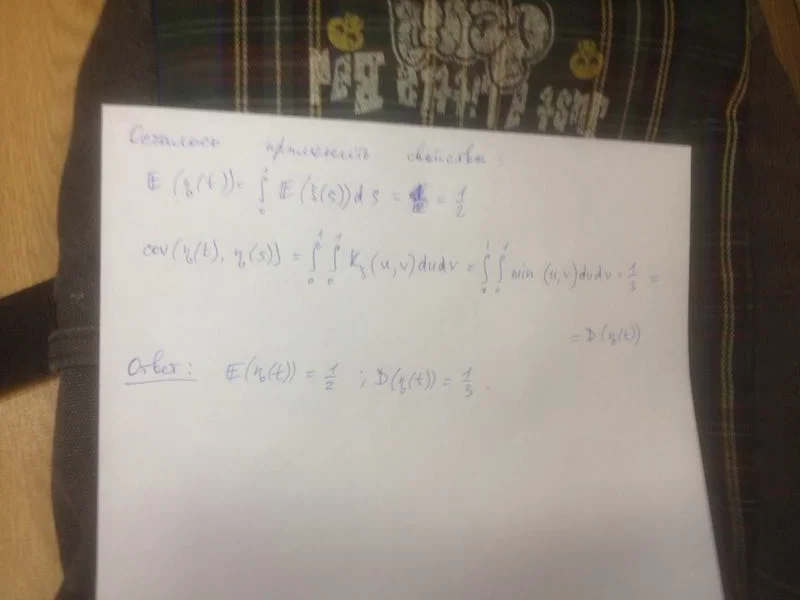 Осталось применить свойства:
E(η(t)) = ∫₀¹ E(ξ(s))ds = = 1/2
cov(η(t), η(s)) = ∫₀¹ ∫₀¹ K_ξ(u,v)dudv = ∫₀¹ ∫₀¹ min (u,v)dudv = 1/3 =
= D(η(t))
Ответ: E(η(t)) = 1/2 ; D(η(t)) = 1/3.